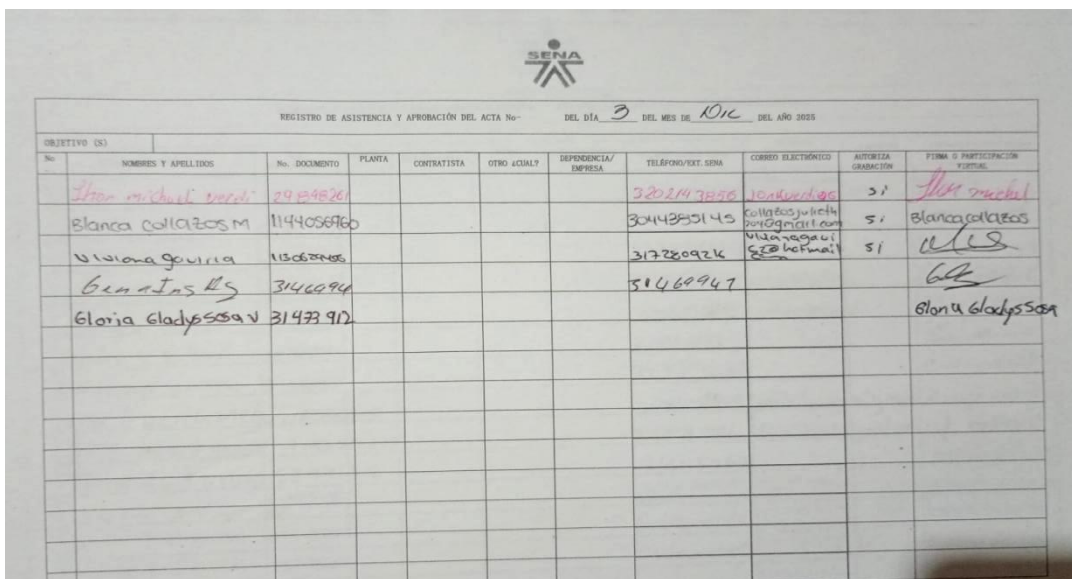 SENA
REGISTRO DE ASISTENCIA Y APROBACIÓN DEL ACTA No- DEL DÍA 3 DEL MES DE Dic DEL AÑO 2025
OBJETIVO (S)
No NOMBRES Y APELLIDOS No. DOCUMENTO PLANTA CONTRATISTA OTRO ¿CUAL? DEPENDENCIA/ EMPRESA TELÉFONO/EXT. SENA CORREO ELECTRÓNICO AUTORIZA GRABACIÓN FIRMA O PARTICIPACIÓN VIRTUAL
michael 3202143856 si
Blanca collazos M 1144056960 3044385145 collazosjulieth si Blanca collazos
Viviana gaviria 3172809216 si
31469947
Gloria Gladys Sosa V 31473912 Gloria Gladys Sosa